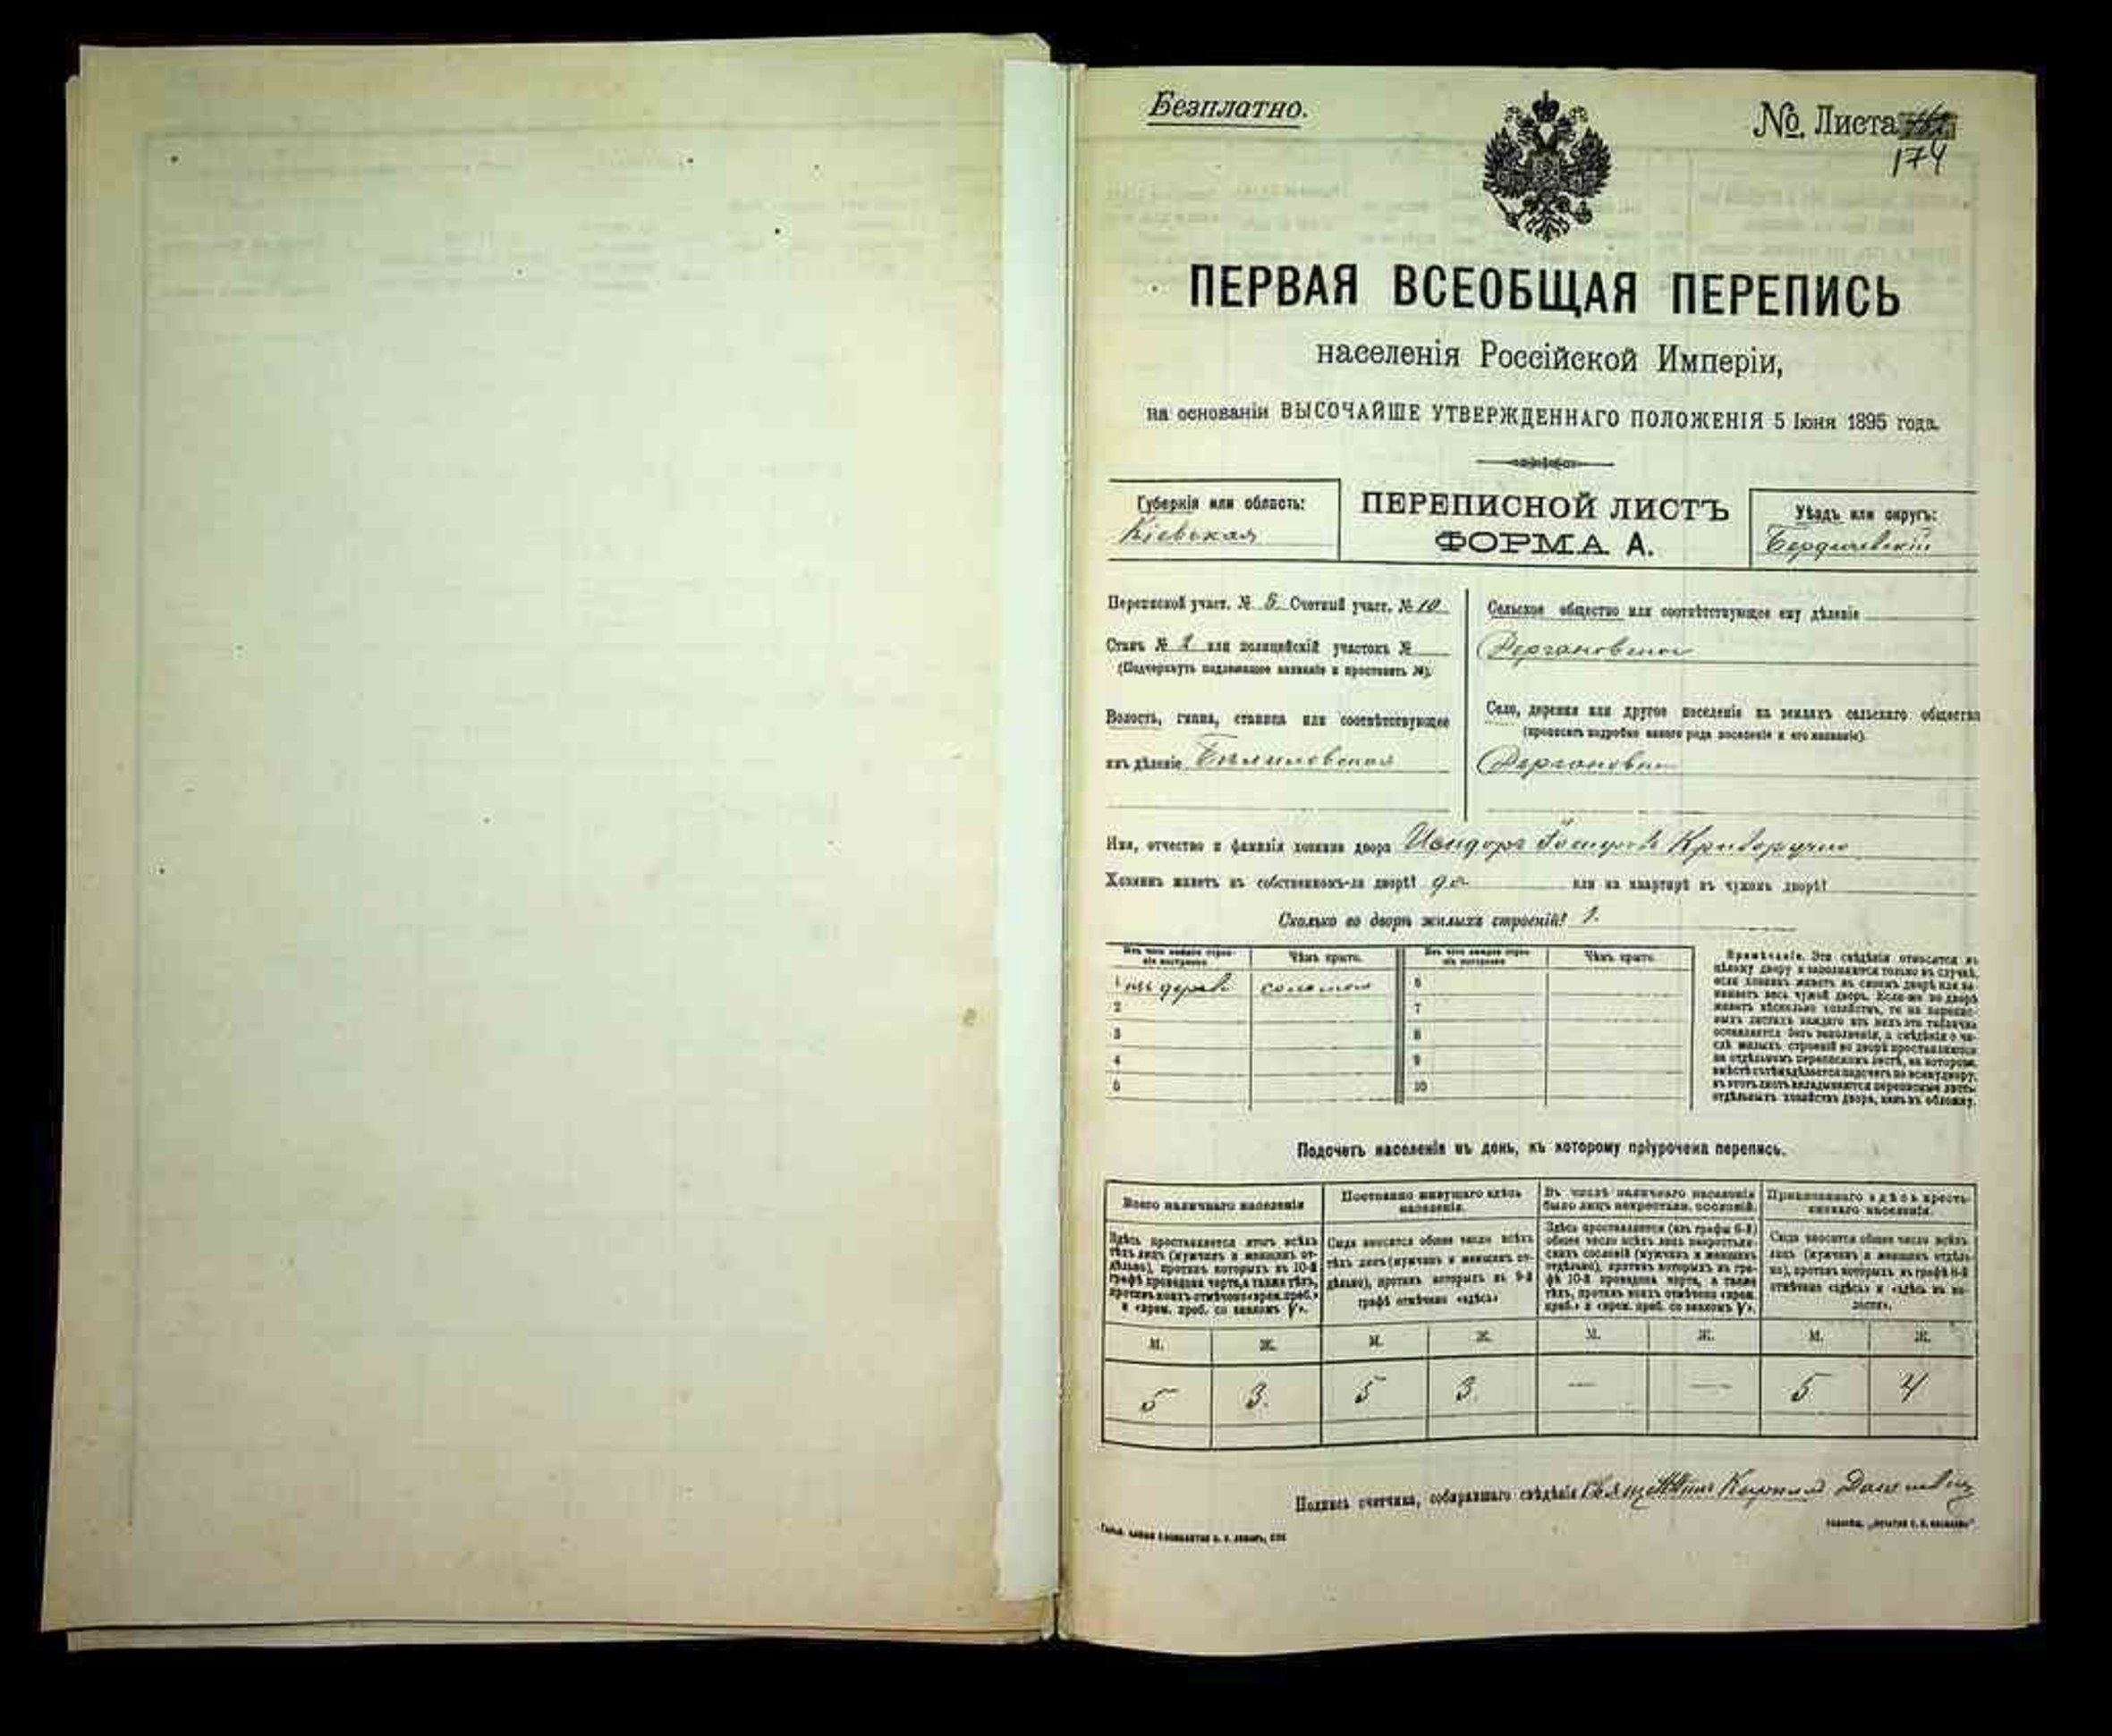 Безплатно.
№ Листа
174
ПЕРВАЯ ВСЕОБЩАЯ ПЕРЕПИСЬ
населенія Россійской Имперіи,
на основаніи ВЫСОЧАЙШЕ УТВЕРЖДЕННАГО ПОЛОЖЕНІЯ 5 Іюня 1895 года.
Губернія или область:
Кіевская
ПЕРЕПИСНОЙ ЛИСТЪ
ФОРМА А.
Уѣздъ или округъ:
Бердичевскій
Переписной участ. № 5 Счетный участ. № 10
Станъ № 2 или полицейскій участокъ №
(Подчеркнуть надлежащее названіе и проставить №).
Волость, гмина, станица или соотвѣтствующее
имъ дѣленіе Бѣлиловская
Сельское общество или соотвѣтствующее ему дѣленіе
Село, деревня или другое поселеніе на земляхъ сельскаго общества
(прописать подробно какого рода поселеніе и его названіе).
Имя, отчество и фамилія хозяина двора Исидоръ Криворучко
Хозяинъ живетъ въ собственномъ-ли дворѣ? да или на квартирѣ въ чужомъ дворѣ?
Сколько во дворѣ жилыхъ строеній? 1.
Изъ чего каждое строе-
ніе построено
Чѣмъ крыто.
Изъ чего каждое строе-
ніе построено
Чѣмъ крыто.
1 изъ дерева соломою 6
2 7
3 8
4 9
5 10
Примѣчаніе. Эти свѣдѣнія относятся къ
цѣлому двору и заполняются только въ случаѣ,
если хозяинъ живетъ въ своемъ дворѣ или за-
нимаетъ весь чужой дворъ. Если-же во дворѣ
живетъ нѣсколько хозяйствъ, то на перепис-
ныхъ листахъ каждаго изъ нихъ эта табличка
оставляется безъ заполненія, а свѣдѣнія о чи-
слѣ жилыхъ строеній во дворѣ проставляются
на отдѣльномъ переписномъ листѣ, на которомъ
вмѣстѣ съ тѣмъ дѣлается подсчетъ по всему двору;
въ этотъ листъ вкладываются переписные листы
отдѣльныхъ хозяйствъ двора, какъ въ обложку.
Подсчетъ населенія въ день, къ которому пріурочена перепись.
Всего наличнаго населенія
Здѣсь проставляется итогъ всѣхъ
тѣхъ лицъ (мужчинъ и женщинъ от-
дѣльно), противъ которыхъ въ 10-й
графѣ проведена черта, а также тѣхъ,
противъ коихъ отмѣчено «врем. преб.»
и «врем. преб. со знакомъ V».
Постоянно живущаго здѣсь
населенія.
Сюда вносится общее число всѣхъ
тѣхъ лицъ (мужчинъ и женщинъ от-
дѣльно), противъ которыхъ въ 9-й
графѣ отмѣчено «здѣсь»
Въ числѣ наличнаго населенія
было лицъ некрестьян. сословій.
Здѣсь проставляется (изъ графы 6-й)
общее число всѣхъ лицъ некрестьян-
скихъ сословій (мужчинъ и женщинъ
отдѣльно), противъ которыхъ въ гра-
фѣ 10-й проведена черта, а также
тѣхъ, противъ коихъ отмѣчено «врем.
преб.» и «врем. преб. со знакомъ V».
Приписаннаго здѣсь кресть-
янскаго населенія.
Сюда вносится общее число всѣхъ
лицъ (мужчинъ и женщинъ отдѣль-
но), противъ которыхъ въ графѣ 8-й
отмѣчено «здѣсь» и «здѣсь въ во-
лости».
М. Ж. М. Ж. М. Ж. М. Ж.
5 3. 5 3. — — 5 4
Подпись счетчика, собиравшаго свѣдѣнія